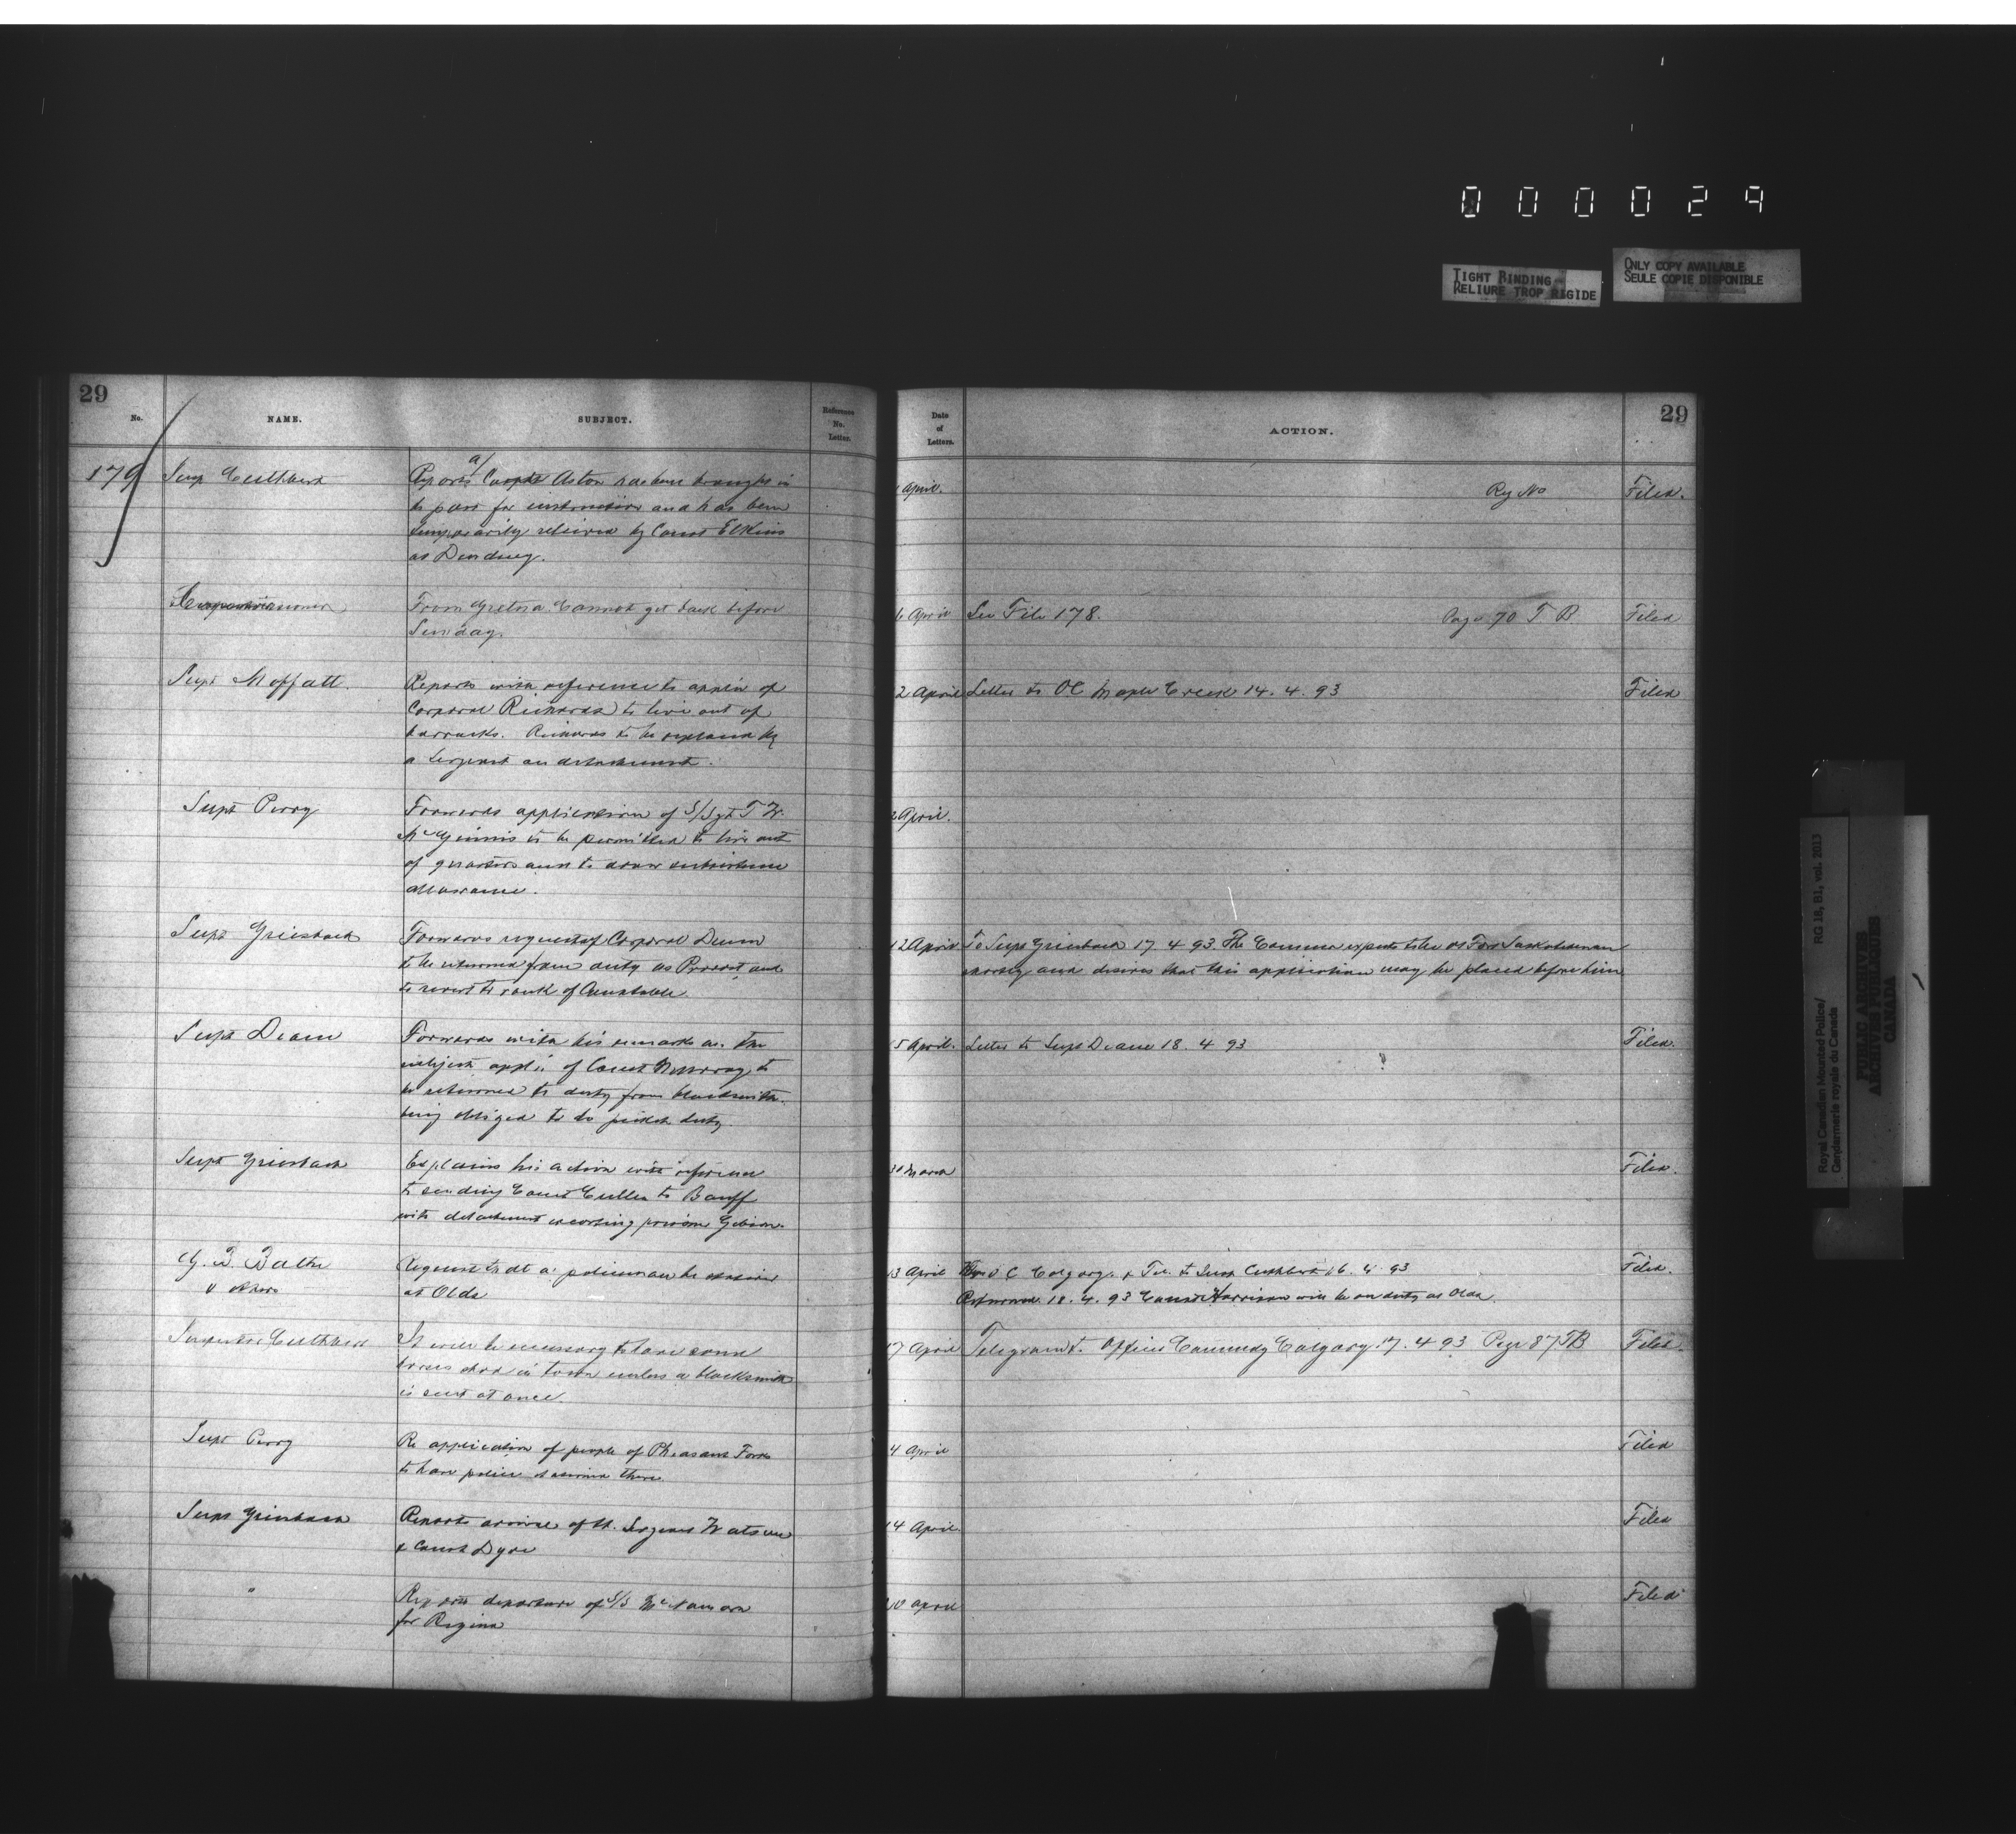 000029
TIGHT BINDING
RELIURE TROP RIGIDE
ONLY COPY AVAILABLE
SEULE COPIE DISPONIBLE
29
No.
NAME.
SUBJECT.
Reference
No.
Letter.
179
Insp Cuthbert
Reports a/ Corpl Aston has been brought in
to post for instruction and has been
temporarily relieved by Const Elkins
at
Commissioner
From Gretna. Cannot get back before
Sunday.
Supt Moffatt.
Reports with reference to appln of
Corporal Richards to live out of
barracks. Richards to be replaced by
a Sergeant on detachment.
Supt Perry
Forwards application of S/Sgt T W.
McGinnis to be permitted to live out
of quarters and to draw subsistence
allowance.
Supt Griesbach
Forwards request of Corporal Dunn
to be returned from duty as Provost and
to revert to rank of Constable.
Supt Deane
Forwards with his remarks on the
subject appln of Const Murray to
be returned to duty from blacksmith.
being obliged to do picket duty.
Supt Griesbach
Explains his action with reference
to sending Const Cullen to Banff
with detachment escorting prisoner
G. B.
" others
Request that a policeman be stationed
at Olds
Inspector Cuthbert
It will be necessary to have some
horses shod in town unless a blacksmith
is sent at once.
Supt Perry
Re application of people of Pheasant Forks
to have police stationed there.
Supt Griesbach
Reports arrival of St. Sergeant Watson
& Const Dyre
"
Reports departure of S/S McNamara
for Regina
Date
of
Letters.
ACTION.
29
April.
Reg No
Filed.
6 April
See File 178.
Page 70 T B.
Filed
2 April
Letter to OC Maple Creek 14. 4. 93
Filed
2 April.
12 April
To Supt Griesbach 17. 4 93. The Commr expects to be at Fort Saskatchewan
shortly and desires that this application may be placed before him
5 April.
Letter to Supt Deane 18. 4 93
Filed.
30 March
Filed.
13 April
O C Calgary. & Tel. to Insp Cuthbert 16. 4. 93
Returned 18. 4. 93 Const Harrison will be on duty at Olds.
Filed.
17 April
Telegram to Officer Commdg Calgary 17. 4 93 Page 87 TB
Filed.
4 April
Filed
14 April
Filed
10 April
Filed
Royal Canadian Mounted Police/
Gendarmerie royale du Canada
RG 18, B1, vol. 2013
PUBLIC ARCHIVES
ARCHIVES PUBLIQUES
CANADA